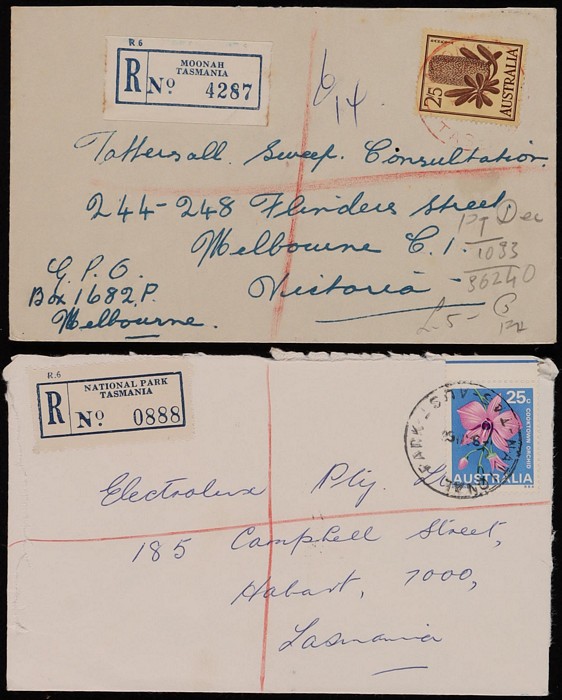 R 6
MOONAH
TASMANIA
R No 4287
2/5
AUSTRALIA
TAS
14.
Tattersall Sweep. Consultation.
244-248 Flinders Street,
Melbourne C.1.
Victoria
G.P.O.
Box 1682.P.
Melbourne.
Dec
1093
36240
£-5-
R.6
NATIONAL PARK
TASMANIA
R No 0888
25c
COOKTOWN ORCHID
AUSTRALIA
NATIONAL PARK
TAS-AUST
Electrolux Pty.
185 Campbell Street,
Hobart, 7000,
Tasmania